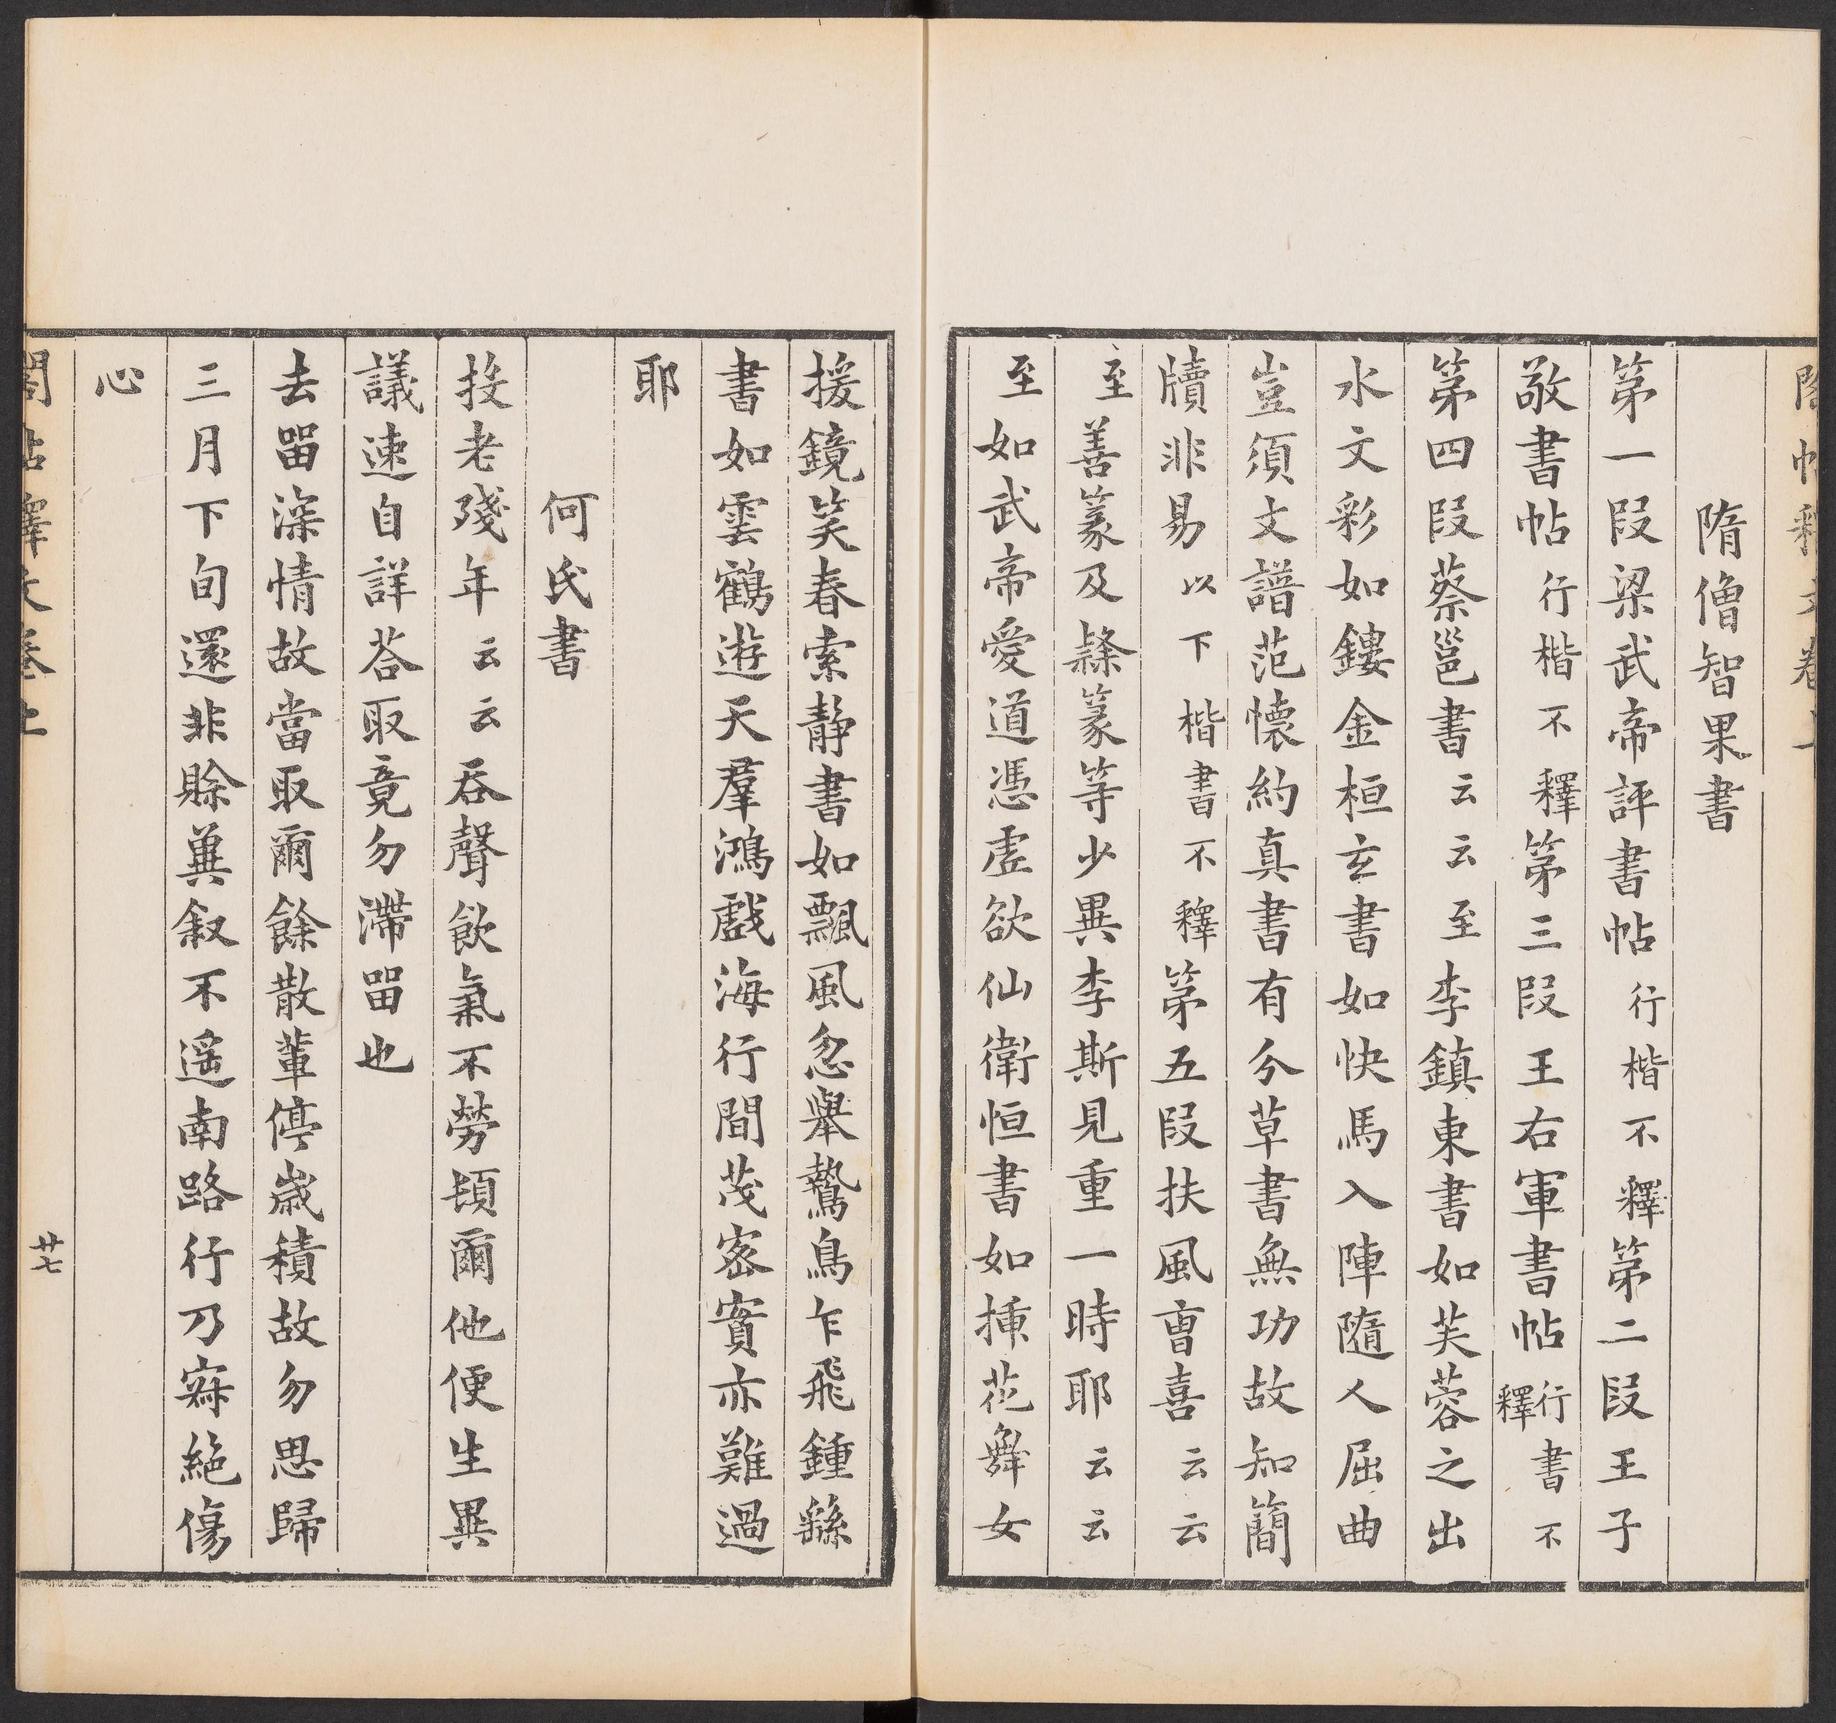 隋僧智果書
第一段梁武帝評書帖行楷不釋第二段王子
敬書帖行楷不釋第三段王右軍書帖行書不釋
第四段蔡邕書云云至李鎮東書如芙蓉之出
水文彩如鏤金桓玄書如快馬入陣隨人屈曲
豈須文譜范懷約真書有分草書無功故知簡
牘非易以下楷書不釋第五段扶風曹喜云云
至善篆及隸篆等少異李斯見重一時耶云云
至如武帝愛道憑虛欲仙衛恒書如揷花舞女
援鏡笑春索靜書如飄風忽舉鷙鳥乍飛鍾繇
書如雲鶴遊天羣鴻戲海行間茂密實亦難過
耶
何氏書
投老殘年云云吞聲飲氣不勞頓爾他便生異
議速自詳荅取竟勿滯畱也
去畱深情故當取爾餘散輩停歲積故勿思歸
三月下旬還非賒兾叙不遥南路行乃寐絕傷
心
閣帖釋文卷上
廿七